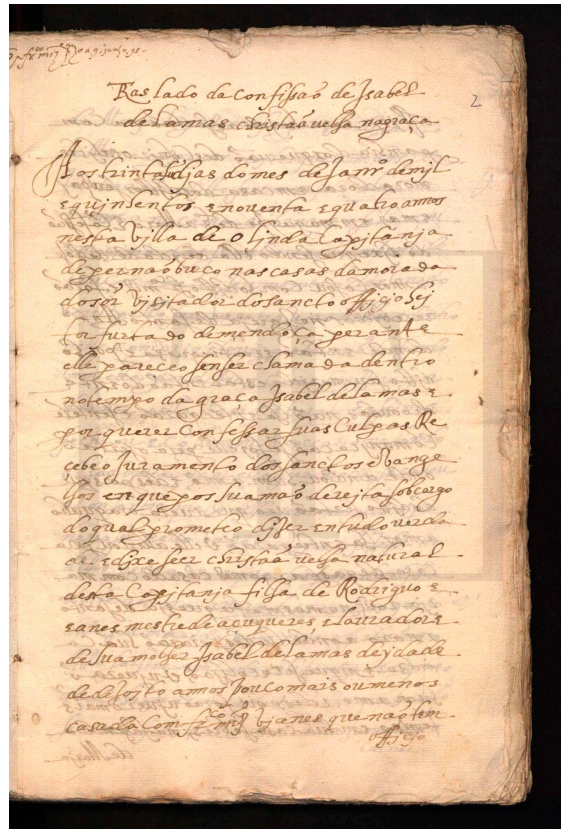 2
Traslado da confissaõ de Isabel
de lamas christaã velha na graça
Aos trinta dias do mes de Janrº de mil
e quinsentos e noventa e quatro annos
nesta villa de olinda Capitanja
de pernaõbuco nas casas da morada
do sõr Visitador do sancto officio Hei
tor furtado de mendoça perante
elle pareceo sem ser chamada dentro
no tempo da graça Isabel de lamas e
por querer Confessar suas Culpas Re
cebeo Juramento dos sanctos evange
lhos em que pos sua maõ dereita sob cargo
do qual prometeo dizer em tudo verda
de e dixe seer christaã velha natural
desta Capitanja filha de Rodriguo
eanes mestre de açuqueres e laurador e
de sua molher Isabel de lamas de ydade
de dezoito annos pouco mais ou menos
casada Com que naõ tem
officio